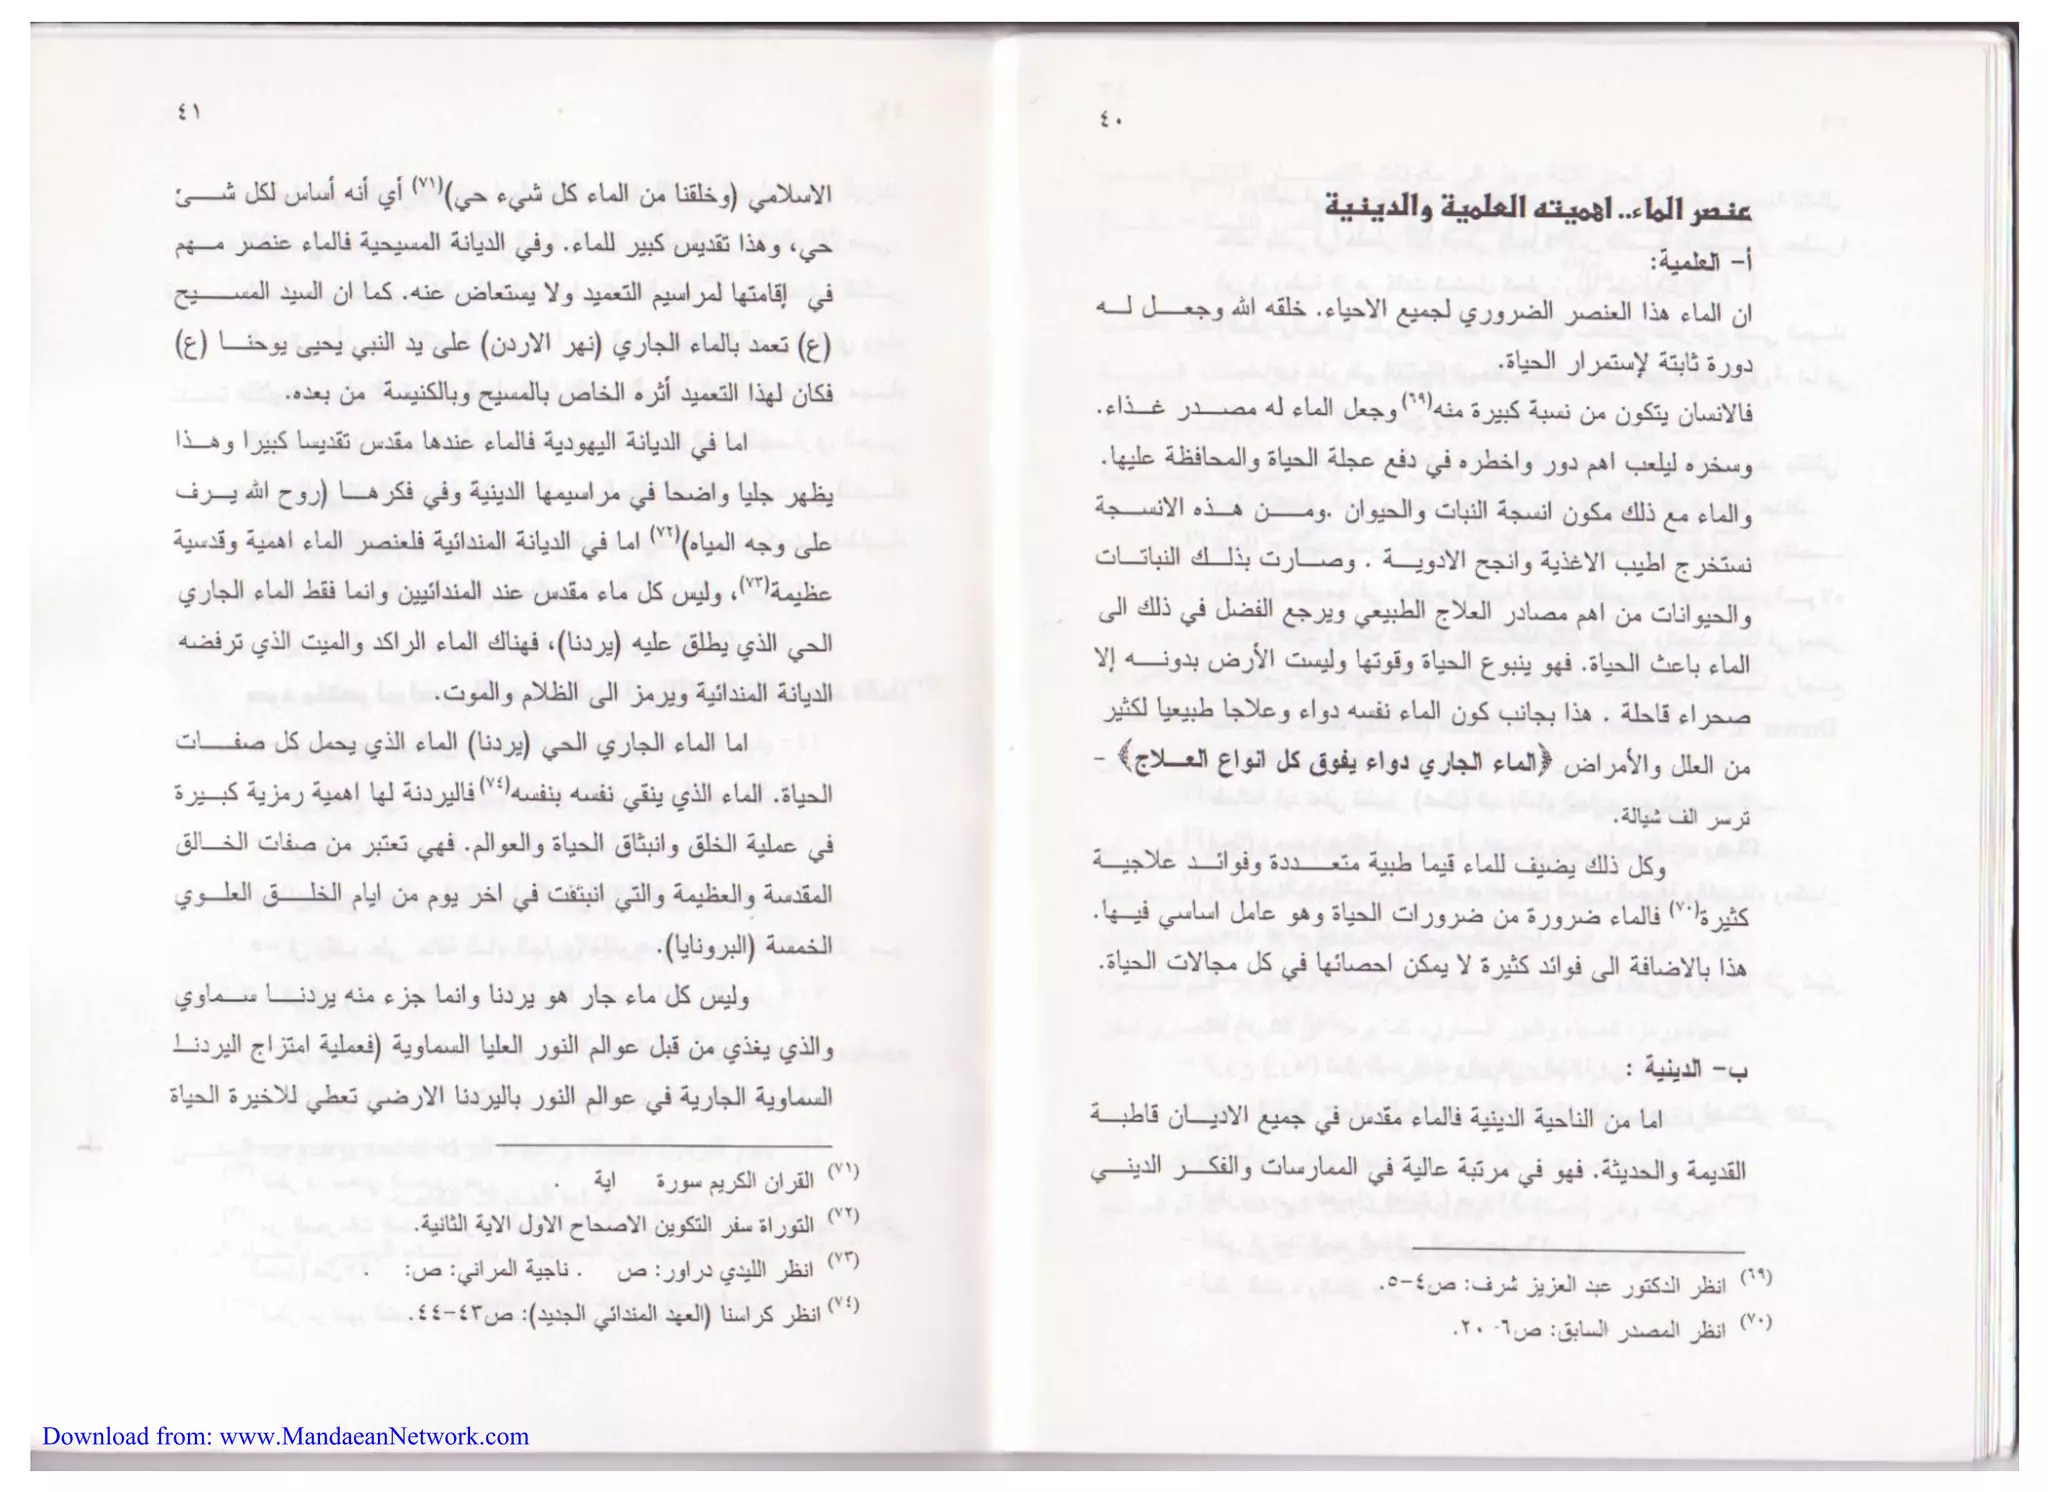 ٤٠
عنصر الماء.. اهميته العلمية والدينية
أ- العلمية:
ان الماء هذا العنصر الضروري لجميع الاحياء. خلقه الله وجعل له
دورة ثابتة لإستمرار الحياة.
فالانسان يتكون من نسبة كبيرة منه(٦٩) وجعل الماء له مصدر غذاء.
وسخره ليلعب اهم دور واخطره في دفع عجلة الحياة والمحافظة عليها.
والماء مع ذلك مكون انسجة النبات والحيوان. ومن هذه الانسجة
نستخرج اطيب الاغذية وانجح الادوية . وصارت بذلك النباتات
والحيوانات من اهم مصادر العلاج الطبيعي ويرجع الفضل في ذلك الى
الماء باعث الحياة. فهو ينبوع الحياة وقوتها وليست الأرض بدونه إلا
صحراء قاحلة . هذا بجانب كون الماء نفسه دواء وعلاجا طبيعيا لكثير
من العلل والأمراض ﴿الماء الجاري دواء يفوق كل انواع العلاج﴾ -
ترسر الف شيالة.
وكل ذلك يضيف للماء قيما طبية متعددة وفوائد علاجية
كثيرة(٧٠) فالماء ضرورة من ضرورات الحياة وهو عامل اساسي فيها.
هذا بالاضافة الى فوائد كثيرة لا يمكن احصائها في كل مجالات الحياة.
ب- الدينية :
اما من الناحية الدينية فالماء مقدس في جميع الاديان قاطبة
القديمة والحديثة. فهو في مرتبة عالية في الممارسات والفكر الديني
(٦٩) انظر الدكتور عبد العزيز شرف: ص٤-٥.
(٧٠) انظر المصدر السابق: ص٦-٢٠.
٤١
الاسلامي (وخلقنا من الماء كل شيء حي)(٧١) أي أنه أساس لكل شئ
حي، وهذا تقديس كبير للماء. وفي الديانة المسيحية فالماء عنصر مهم
في إقامتها لمراسيم التعميد ولا يستعاض عنه. كما ان السيد المسيح
(ع) تعمد بالماء الجاري (نهر الاردن) على يد النبي يحيى يوحنا (ع)
فكان لهذا التعميد أثره الخاص بالمسيح وبالكنيسة من بعده.
اما في الديانة اليهودية فالماء عندها مقدس تقديسا كبيرا وهذا
يظهر جليا واضحا في مراسيمها الدينية وفي فكرها (روح الله يرف
على وجه المياه)(٧٢) اما في الديانة المندائية فلعنصر الماء اهمية وقدسية
عظيمة(٧٣)، وليس كل ماء مقدس عند المندائيين وانما فقط الماء الجاري
الحي الذي يطلق عليه (يردنا)، فهناك الماء الراكد والميت الذي ترفضه
الديانة المندائية ويرمز الى الظلام والموت.
اما الماء الجاري الحي (يردنا) الماء الذي يحمل كل صفات
الحياة. الماء الذي ينقي نفسه بنفسه(٧٤) فاليردنة لها اهمية رمزية كبيرة
في عملية الخلق وانبثاق الحياة والعوالم. فهي تعتبر من صفات الخالق
المقدسة والعظيمة والتي انبثقت في اخر يوم من ايام الخلق العلوي
الخمسة (البرونايا).
وليس كل ماء جار هو يردنا وانما جزء منه يردنا سماوي
والذي يغذي من قبل عوالم النور العليا السماوية (فعملية امتزاج اليردنا
السماوية الجارية في عوالم النور باليردنا الارضي تعطي للاخيرة الحياة
(٧١) القران الكريم سورة اية .
(٧٢) التوراة سفر التكوين الاصحاح الاول الاية الثانية.
(٧٣) انظر الليدي دراور: ص . ناجية المراني: ص: .
(٧٤) انظر كراسنا (العهد المندائي الجديد): ص٤٣-٤٤.
Download from: www.MandaeanNetwork.com